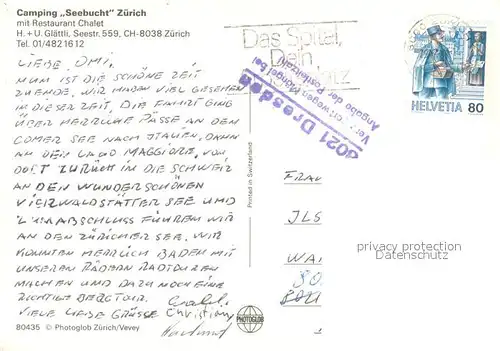 Camping „Seebucht" Zürich
mit Restaurant Chalet
H. + U. Glättli, Seestr. 559, CH-8038 Zürich
Tel. 01/482 16 12
LIEBE OMI,
NUN IST DIE SCHÖNE ZEIT
ZUENDE. WIR HABEN VIEL GESEHEN
IN DIESER ZEIT. DIE FAHRT GING
ÜBER HERRLICHE PÄSSE AN DEN
COMER SEE NACH ITALIEN, DANN
AN DEN LAGO MAGGIORE, VON
DORT ZURÜCK IN DIE SCHWEIZ
AN DEN WUNDERSCHÖNEN
VIERWALDSTÄTTER SEE UND
ZUM ABSCHLUSS FUHREN WIR
AN DEN ZÜRICHER SEE. WIR
KONNTEN HERRLICH BADEN MIT
UNSEREN RÄDERN RADTOUREN
MACHEN UND DAZU NOCH EINE
RICHTIGE BERGTOUR.
VIELE LIEBE GRÜSSE
Christian
80435 © Photoglob Zürich/Vevey
PHOTOGLOB
Printed in Switzerland
Das Spital,
Dein
8021 Dresden
wegen Mängel bei
Angabe der Postleitzahl
HELVETIA 80
FRAU
ILS
protection privacy
Datenschutz